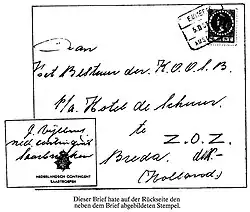 Aan
Het Bestuur der K.O.O.I.B.
p/a Hotel de Schuur
te
Z.O.Z.
Breda
(Holland)
J.
Ned. Contingent
Saarbrücken
NEDERLANDSCH CONTINGENT
SAARTROEPEN
Dieser Brief hate auf der Rückseite den
neben dem Brief abgebildeten Stempel.